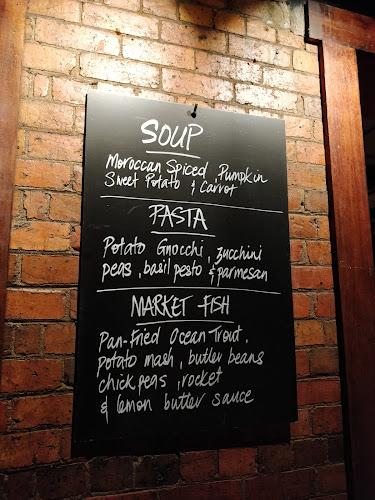 SOUP
Moroccan Spiced, Pumpkin
Sweet Potato & Carrot
PASTA
Potato Gnocchi, zucchini
peas, basil pesto & parmesan
MARKET FISH
Pan-fried Ocean Trout,
potato mash, butter beans
chick peas, rocket
& lemon butter sauce